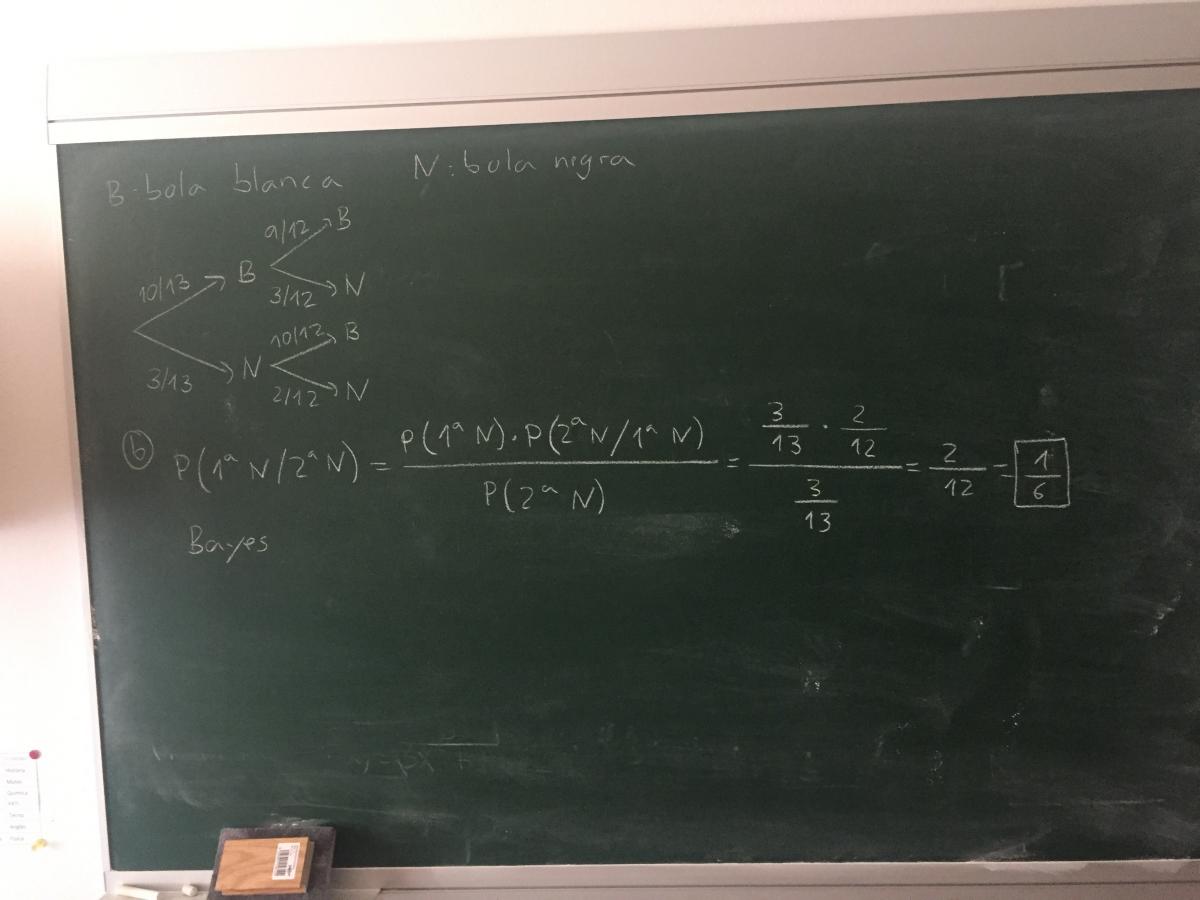 B: bola blanca N: bola negra
9/12 B
10/13 B
3/12 N
10/12 B
3/13 N
2/12 N
b) P(1ª N/2ª N) = P(1ª N)·P(2ª N/1ª N) / P(2ª N) = (3/13 · 2/12) / (3/13) = 2/12 = 1/6
Bayes